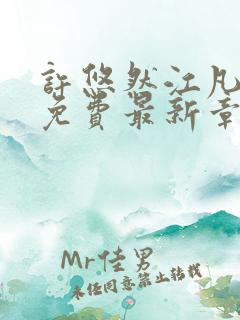 許悠然江凡
免費最新章
Mr佳男
未经同意禁止转载